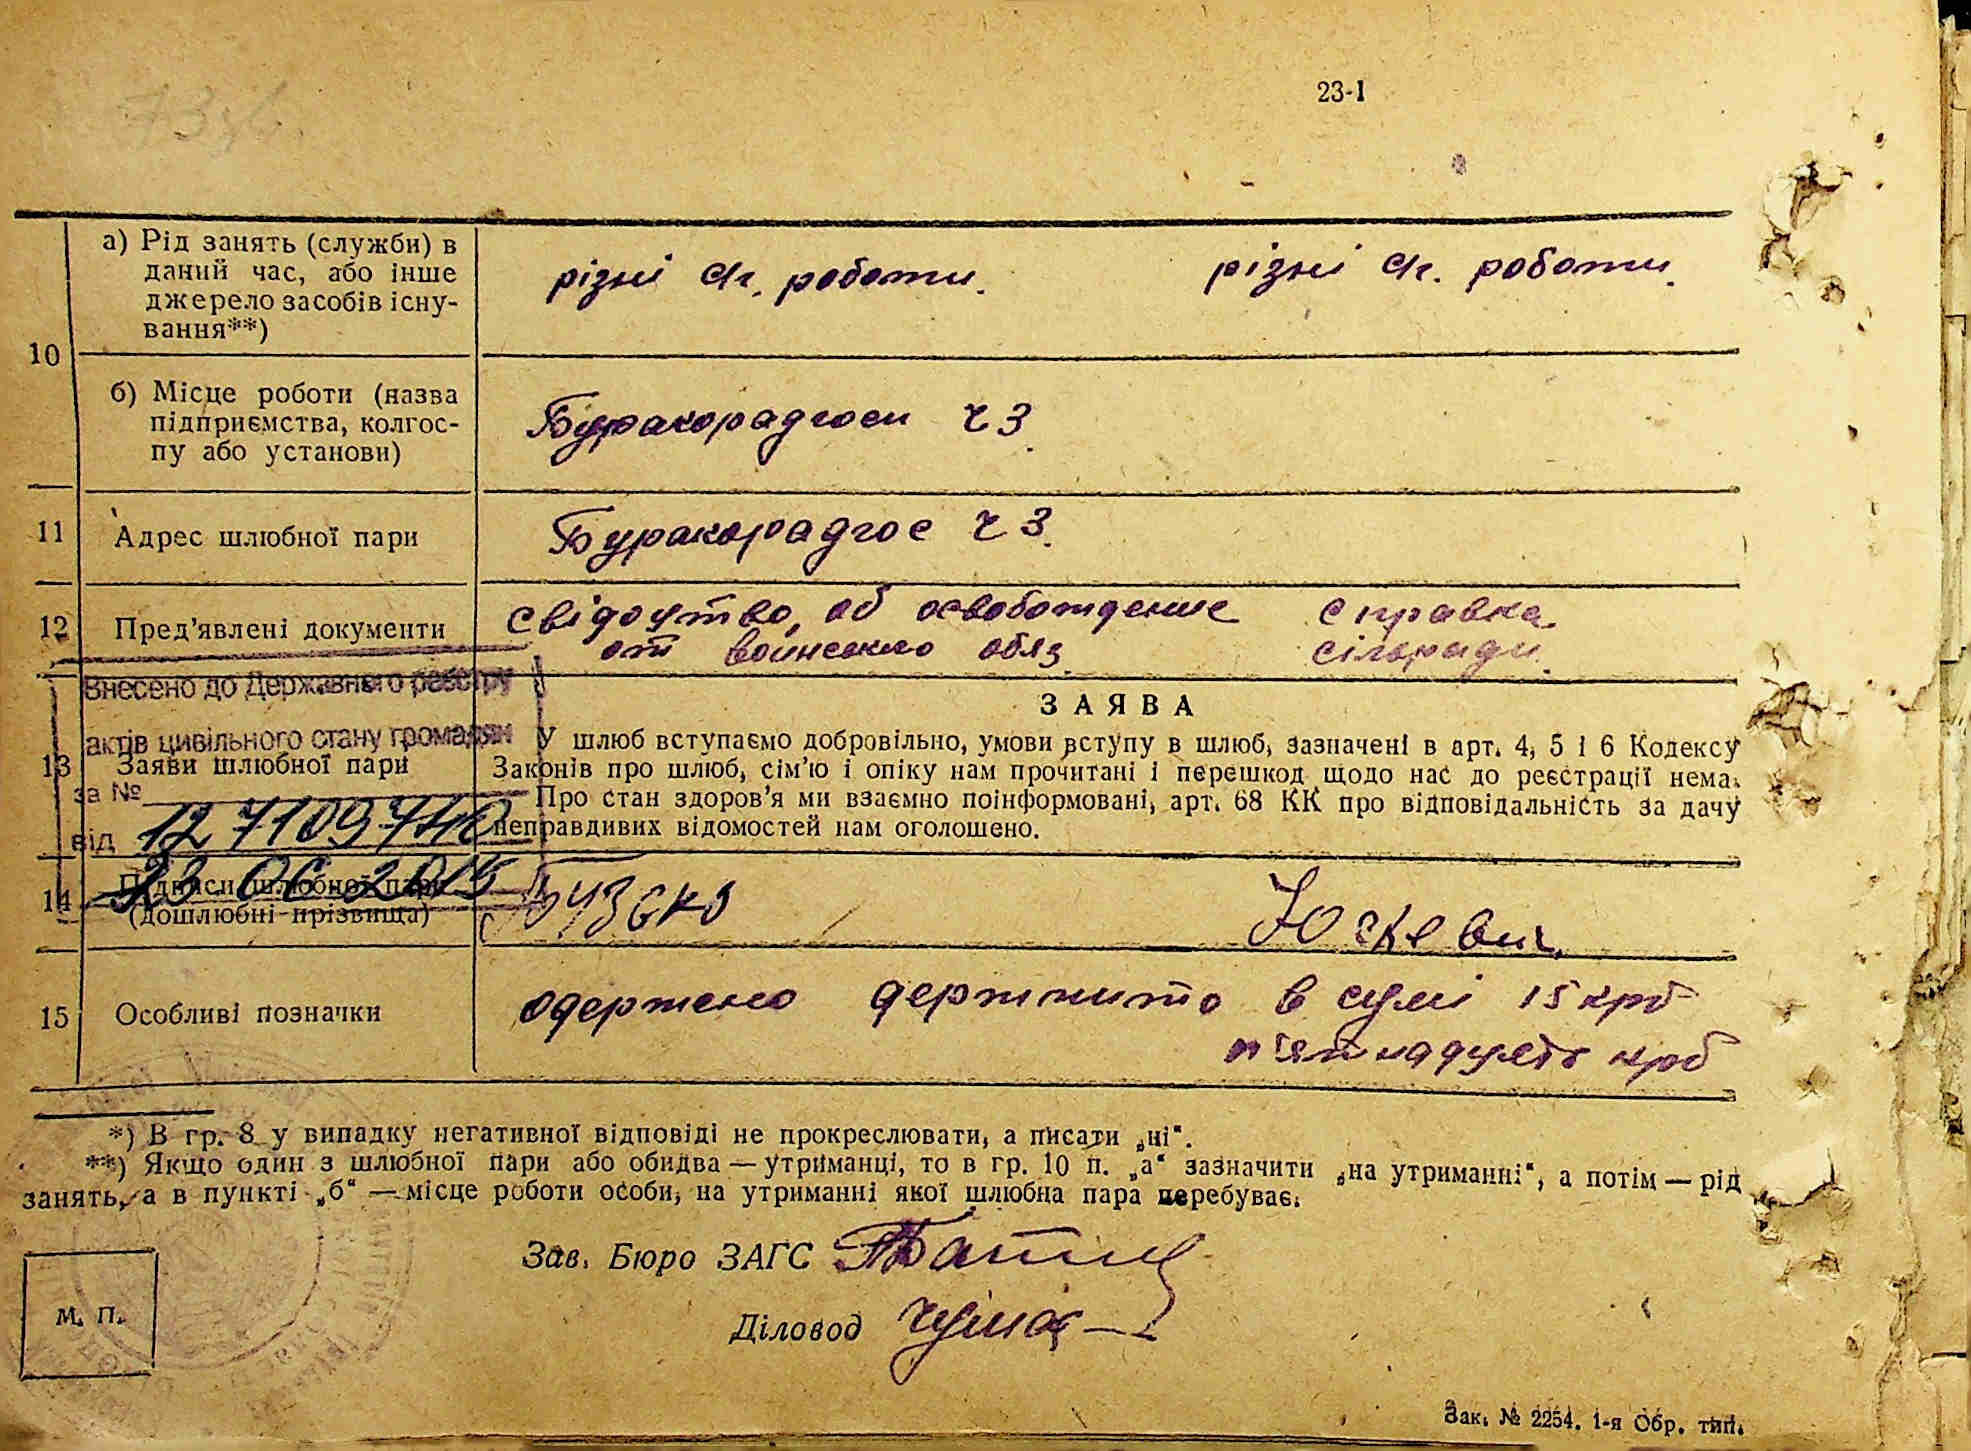 23-1
10
а) Рід занять (служби) в
даний час, або інше
джерело засобів існу-
вання**)
різні с/г. роботи.
різні с/г. роботи.
б) Місце роботи (назва
підприємства, колгос-
пу або установи)
Буракорадгосп ч 3
11
Адрес шлюбної пари
Буракорадгос ч 3.
12
Пред'явлені документи
свідоцтво, об освобождение
от воинского обяз.
справка
сільради.
Внесено до Державного реєстру
актів цивільного стану громадян
за №
127109740
від
2015
13
Заяви шлюбної пари
ЗАЯВА
У шлюб вступаємо добровільно, умови вступу в шлюб, зазначені в арт. 4, 5 і 6 Кодексу
Законів про шлюб, сім'ю і опіку нам прочитані і перешкод щодо нас до реєстрації нема.
Про стан здоров'я ми взаємно поінформовані, арт. 68 КК про відповідальність за дачу
неправдивих відомостей нам оголошено.
14
Підписи шлюбної пари
(дошлюбні прізвища)
Юскевич.
15
Особливі позначки
одержано держмито в сумі 15 крб
п'ятнадцять крб
*) В гр. 8 у випадку негативної відповіді не прокреслювати, а писати „ні“.
**) Якщо один з шлюбної пари або обидва — утриманці, то в гр. 10 п. „а“ зазначити „на утриманні“, а потім — рід
занять, а в пункті „б“ — місце роботи особи, на утриманні якої шлюбна пара перебуває.
Зав. Бюро ЗАГС
Діловод
М. П.
Зак. № 2254. 1-я Обр. тип.